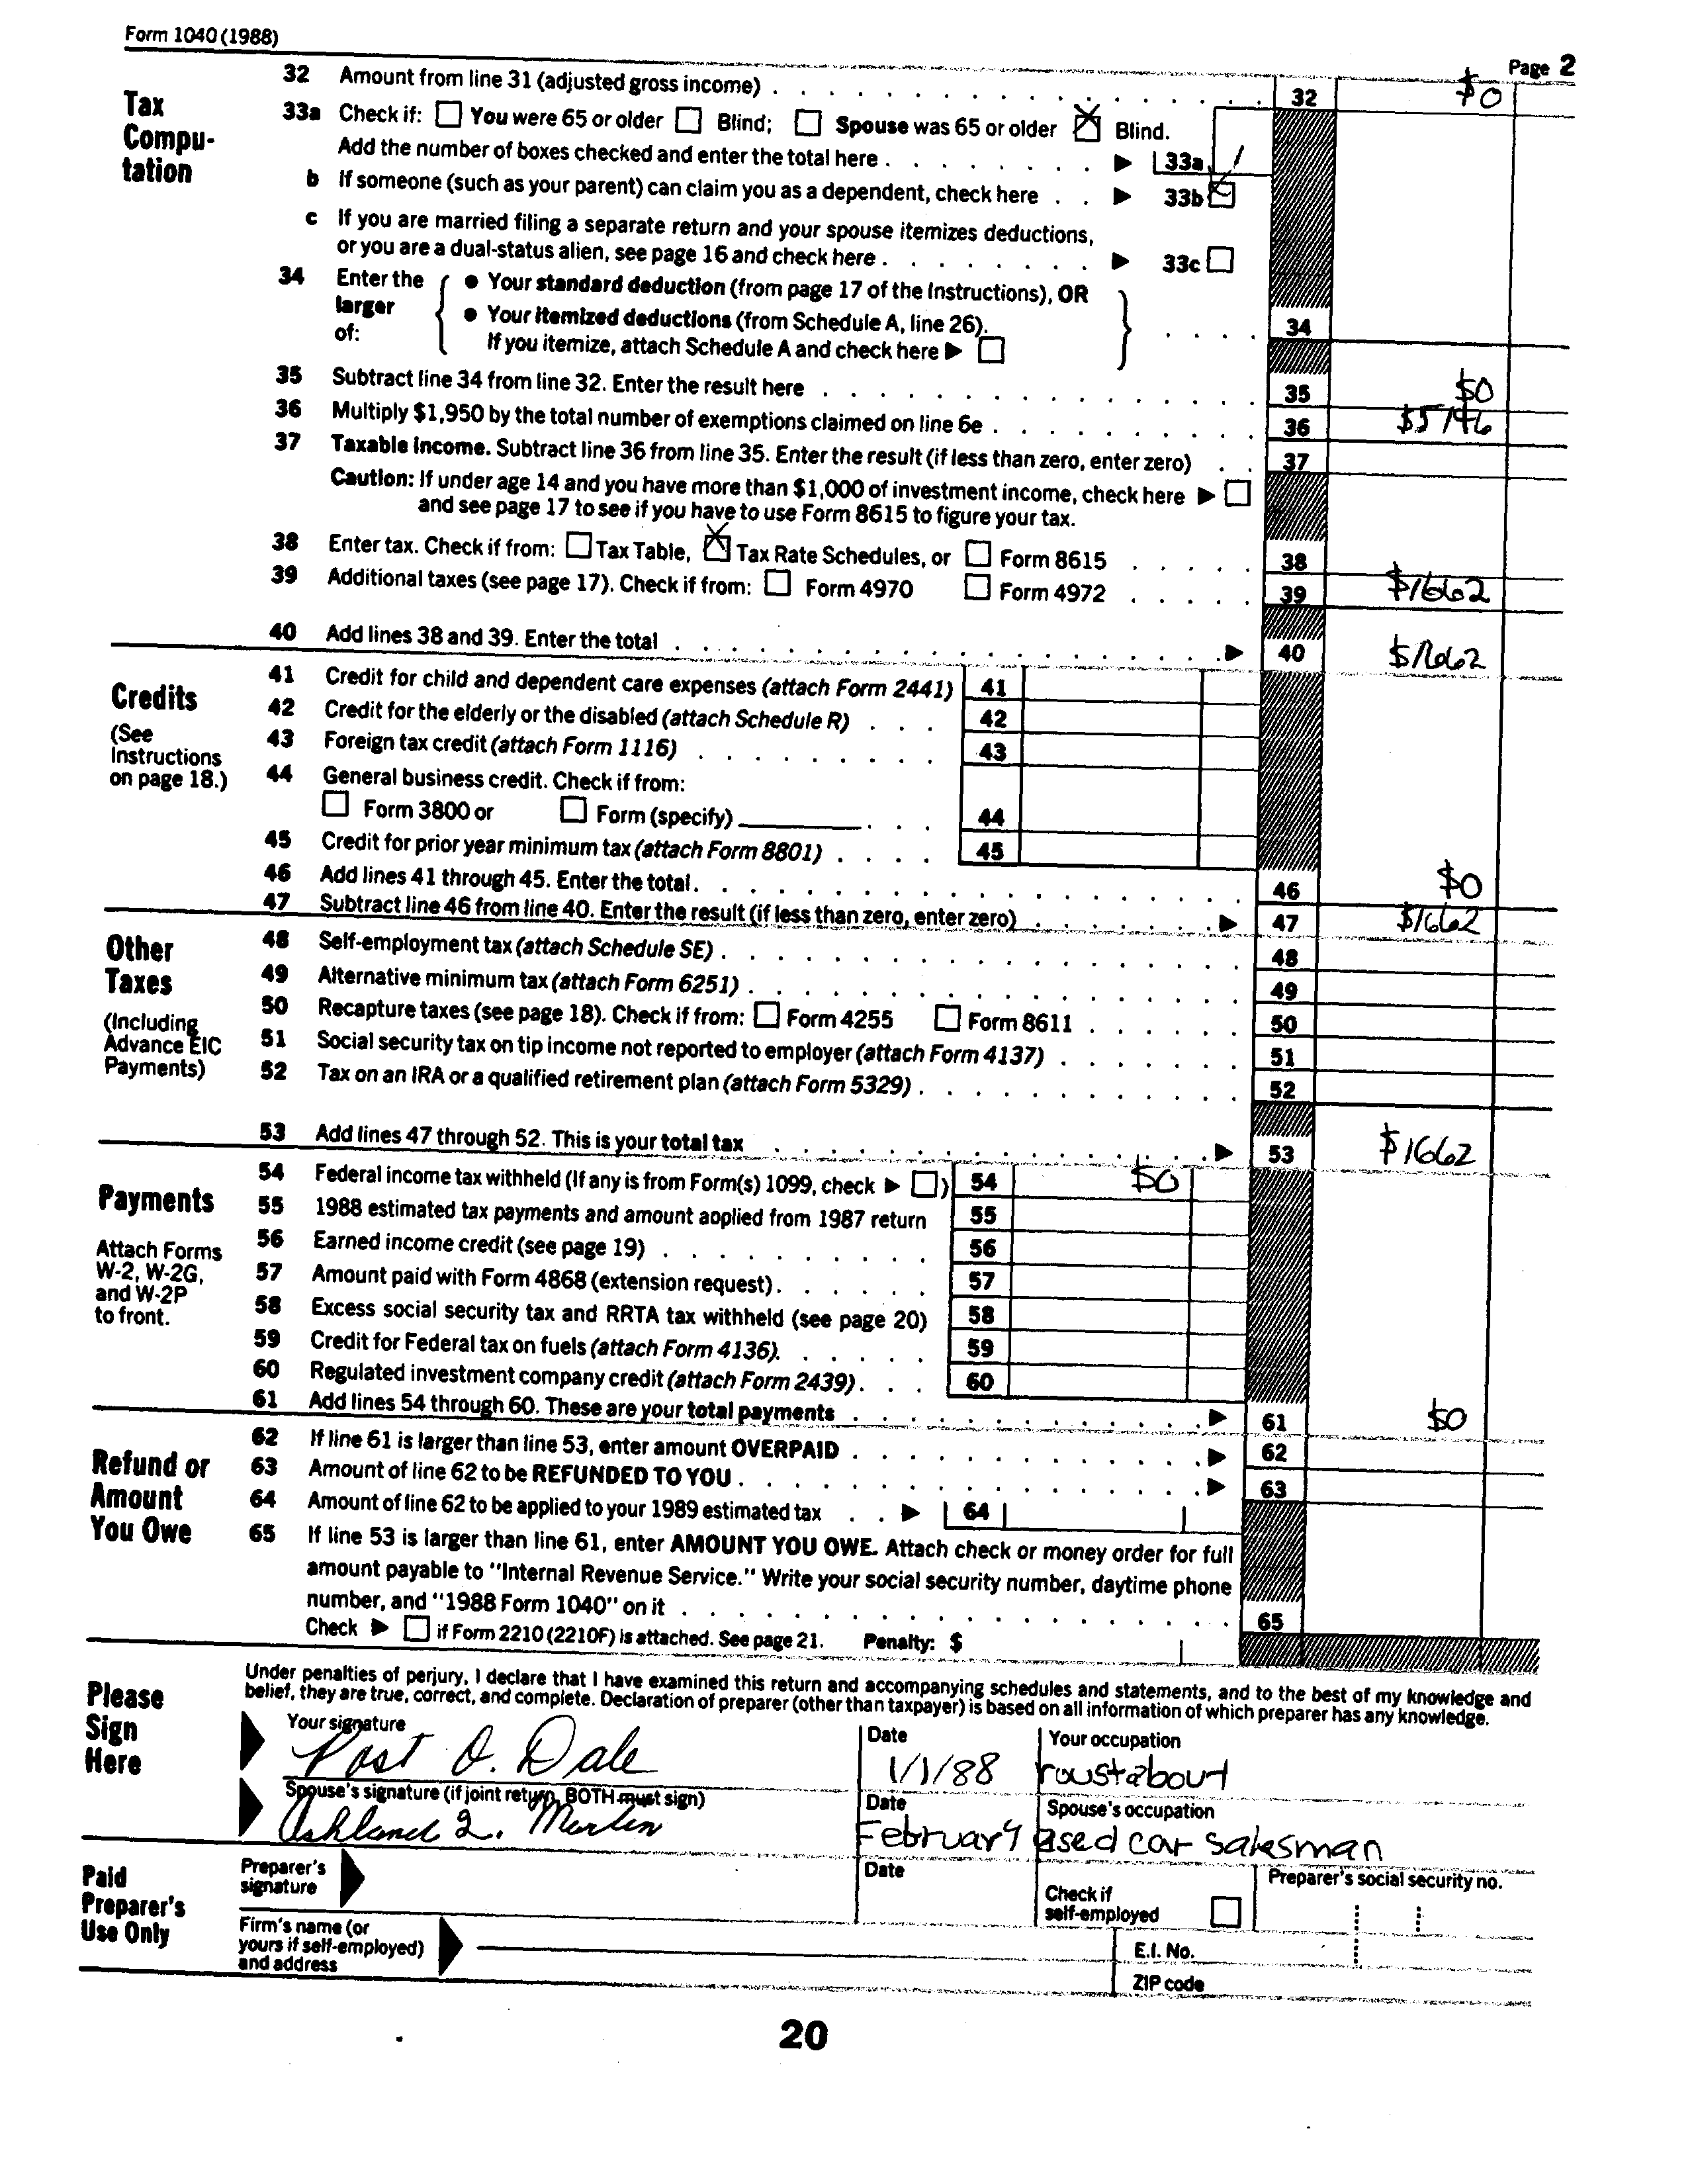 Form 1040 (1988)
Page 2
Tax Compu-
tation
32 Amount from line 31 (adjusted gross income) . . . . . . . . . . . . . . . . . 32 $0
33a Check if: You were 65 or older Blind; Spouse was 65 or older X Blind.
Add the number of boxes checked and enter the total here . . . . . . . ► 33a 1
b If someone (such as your parent) can claim you as a dependent, check here . . ► 33b
c If you are married filing a separate return and your spouse itemizes deductions,
or you are a dual-status alien, see page 16 and check here . . . . . . . . ► 33c
34 Enter the larger of:
● Your standard deduction (from page 17 of the Instructions), OR
● Your itemized deductions (from Schedule A, line 26).
If you itemize, attach Schedule A and check here ► . . . . 34
35 Subtract line 34 from line 32. Enter the result here . . . . . . . . . . . . . . . 35 $0
36 Multiply $1,950 by the total number of exemptions claimed on line 6e . . . . . . . . . . 36 $5746
37 Taxable income. Subtract line 36 from line 35. Enter the result (if less than zero, enter zero) . . 37
Caution: If under age 14 and you have more than $1,000 of investment income, check here ►
and see page 17 to see if you have to use Form 8615 to figure your tax.
38 Enter tax. Check if from: Tax Table, X Tax Rate Schedules, or Form 8615 . . . . . 38
39 Additional taxes (see page 17). Check if from: Form 4970 Form 4972 . . . . . 39 $1662
40 Add lines 38 and 39. Enter the total . . . . . . . . . . . . . . . . . . . ► 40 $1662
Credits
(See
Instructions
on page 18.)
41 Credit for child and dependent care expenses (attach Form 2441) 41
42 Credit for the elderly or the disabled (attach Schedule R) . . . 42
43 Foreign tax credit (attach Form 1116) . . . . . . . . . 43
44 General business credit. Check if from:
Form 3800 or Form (specify) . . . 44
45 Credit for prior year minimum tax (attach Form 8801) . . . . 45
46 Add lines 41 through 45. Enter the total . . . . . . . . . . . . . . . . . . . 46 $0
47 Subtract line 46 from line 40. Enter the result (if less than zero, enter zero) . . . . . . . ► 47 $1662
Other
Taxes
(Including
Advance EIC
Payments)
48 Self-employment tax (attach Schedule SE) . . . . . . . . . . . . . . . . . . 48
49 Alternative minimum tax (attach Form 6251) . . . . . . . . . . . . . . . . . 49
50 Recapture taxes (see page 18). Check if from: Form 4255 Form 8611 . . . . . . 50
51 Social security tax on tip income not reported to employer (attach Form 4137) . . . . . . . 51
52 Tax on an IRA or a qualified retirement plan (attach Form 5329) . . . . . . . . . . . . 52
53 Add lines 47 through 52. This is your total tax . . . . . . . . . . . . . . . . ► 53 $1662
Payments
Attach Forms
W-2, W-2G,
and W-2P
to front.
54 Federal income tax withheld (If any is from Form(s) 1099, check ► ) 54 $0
55 1988 estimated tax payments and amount applied from 1987 return 55
56 Earned income credit (see page 19) . . . . . . . . . . 56
57 Amount paid with Form 4868 (extension request) . . . . . . 57
58 Excess social security tax and RRTA tax withheld (see page 20) 58
59 Credit for Federal tax on fuels (attach Form 4136). . . . . . 59
60 Regulated investment company credit (attach Form 2439) . . . 60
61 Add lines 54 through 60. These are your total payments . . . . . . . . . . . . . ► 61 $0
Refund or
Amount
You Owe
62 If line 61 is larger than line 53, enter amount OVERPAID . . . . . . . . . . . . . ► 62
63 Amount of line 62 to be REFUNDED TO YOU . . . . . . . . . . . . . . . . . ► 63
64 Amount of line 62 to be applied to your 1989 estimated tax . . ► 64
65 If line 53 is larger than line 61, enter AMOUNT YOU OWE. Attach check or money order for full
amount payable to "Internal Revenue Service." Write your social security number, daytime phone
number, and "1988 Form 1040" on it . . . . . . . . . . . . . . . . . . . . 65
Check ► if Form 2210 (2210F) is attached. See page 21. Penalty: $
Please
Sign
Here
Under penalties of perjury, I declare that I have examined this return and accompanying schedules and statements, and to the best of my knowledge and
belief, they are true, correct, and complete. Declaration of preparer (other than taxpayer) is based on all information of which preparer has any knowledge.
Your signature Date Your occupation
Post O. Dale 1/1/88 roustabout
Spouse's signature (if joint return, BOTH must sign) Date Spouse's occupation
Ashland Q. Merlin February used car salesman
Paid
Preparer's
Use Only
Preparer's signature Date Check if self-employed Preparer's social security no.
Firm's name (or
yours if self-employed)
and address
E.I. No.
ZIP code
20